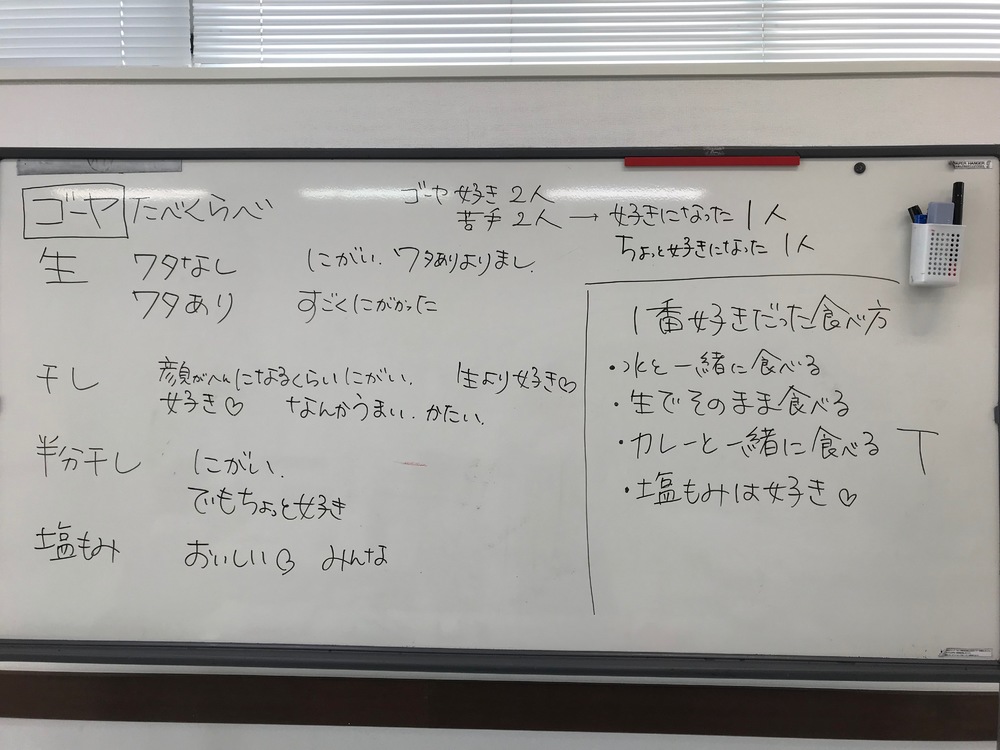 ゴーヤ たべくらべ
ゴーヤ 好き 2人
苦手 2人 → 好きになった 1人
ちょっと好きになった 1人
生 ワタなし にがい. ワタありよりまし.
ワタあり すごくにがかった
干し 顔がへんになるくらいにがい. 生より好き♡
好き♡ なんかうまい. かたい.
半分干し にがい.
でもちょっと好き
塩もみ おいしい♡ みんな
1番好きだった食べ方
・水と一緒に食べる
・生でそのまま食べる
・カレーと一緒に食べる T
・塩もみは好き♡